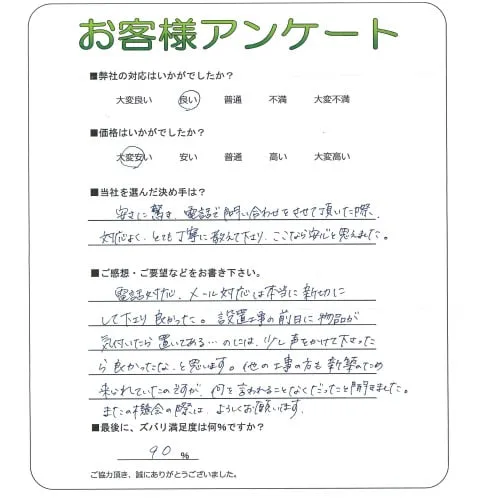 お客様アンケート
■弊社の対応はいかがでしたか？
大変良い 良い 普通 不満 大変不満
■価格はいかがでしたか？
大変安い 安い 普通 高い 大変高い
■当社を選んだ決め手は？
安さに驚き、電話で問い合わせをさせて頂いた際、
対応よく、とても丁寧に教えて下さり、ここなら安心と思えました。
■ご感想・ご要望などをお書き下さい。
電話対応、メール対応は本当に親切に
して下さり良かった。設置工事の前日に物品が
気付いたら置いてある…のには、少し声をかけて下さった
ら良かったな、と思います。他の工事の方も新築のため
来られていたのですが、何を言われることなくだったと聞きました。
またの機会の際は、よろしくお願いします。
■最後に、ズバリ満足度は何％ですか？
90 ％
ご協力頂き、誠にありがとうございました。